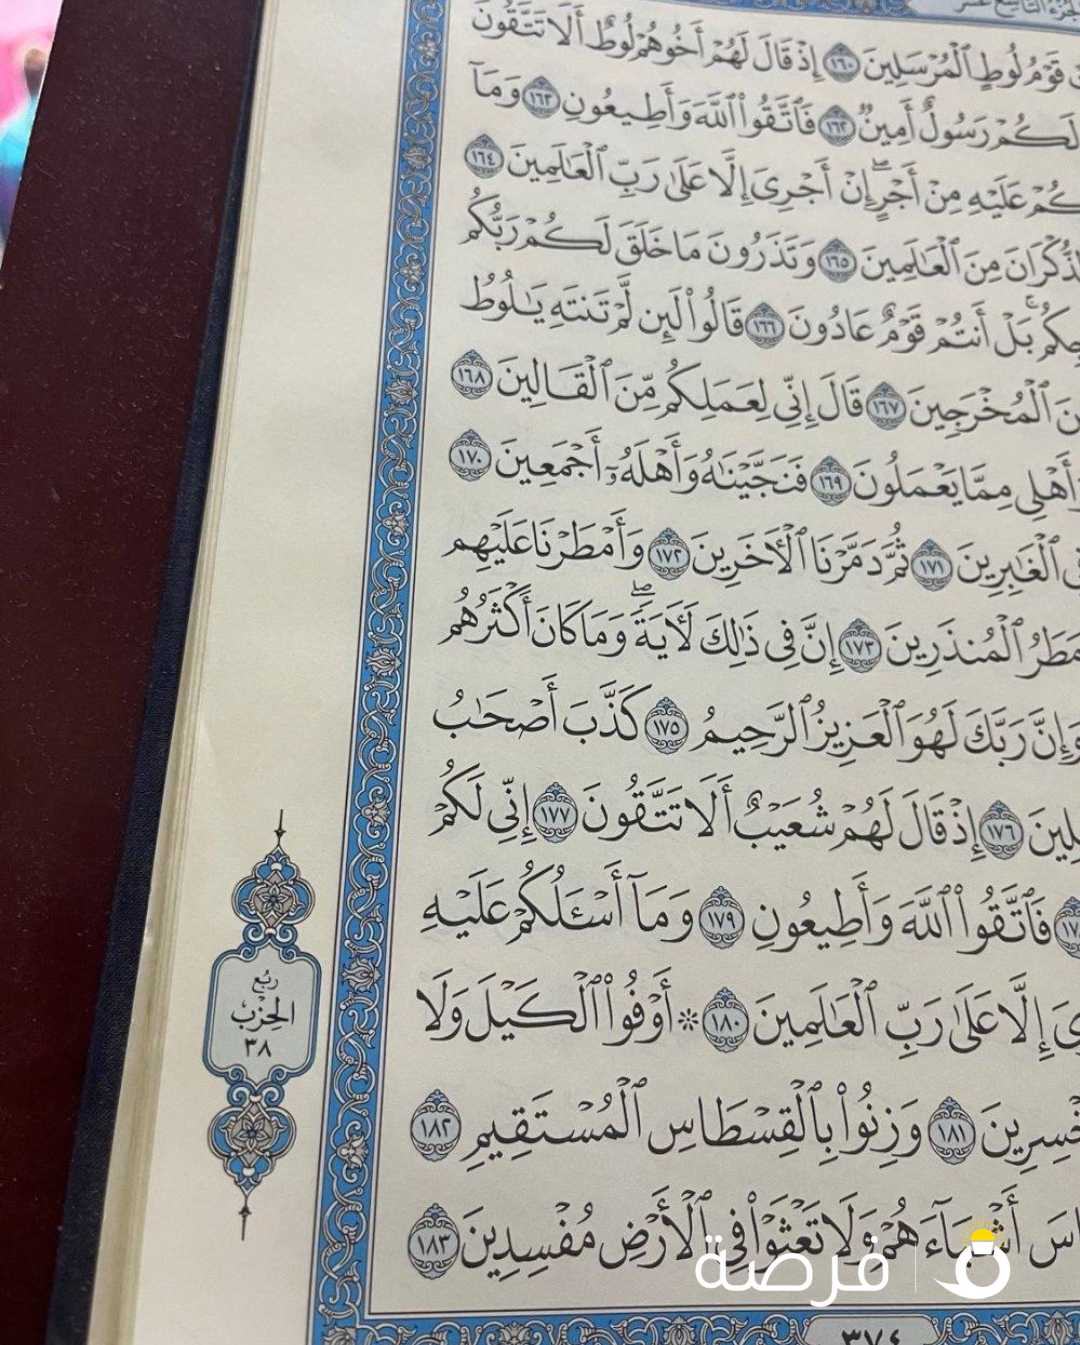 الجزء التاسع عشر
قَوْمُ لُوطٍ ٱلْمُرْسَلِينَ ١٦٠ إِذْ قَالَ لَهُمْ أَخُوهُمْ لُوطٌ أَلَا تَتَّقُونَ
لَكُمْ رَسُولٌ أَمِينٌ ١٦٢ فَٱتَّقُوا۟ ٱللَّهَ وَأَطِيعُونِ ١٦٣ وَمَآ
عَلَيْهِ مِنْ أَجْرٍ ۖ إِنْ أَجْرِىَ إِلَّا عَلَىٰ رَبِّ ٱلْعَـٰلَمِينَ ١٦٤
ٱلذُّكْرَانَ مِنَ ٱلْعَـٰلَمِينَ ١٦٥ وَتَذَرُونَ مَا خَلَقَ لَكُمْ رَبُّكُم
بَلْ أَنتُمْ قَوْمٌ عَادُونَ ١٦٦ قَالُوا۟ لَئِن لَّمْ تَنتَهِ يَـٰلُوطُ
ٱلْمُخْرَجِينَ ١٦٧ قَالَ إِنِّى لِعَمَلِكُم مِّنَ ٱلْقَالِينَ ١٦٨
وَأَهْلِى مِمَّا يَعْمَلُونَ ١٦٩ فَنَجَّيْنَـٰهُ وَأَهْلَهُۥٓ أَجْمَعِينَ ١٧٠
فِى ٱلْغَـٰبِرِينَ ١٧١ ثُمَّ دَمَّرْنَا ٱلْـَٔاخَرِينَ ١٧٢ وَأَمْطَرْنَا عَلَيْهِم
مَطَرُ ٱلْمُنذَرِينَ ١٧٣ إِنَّ فِى ذَٰلِكَ لَـَٔايَةً ۖ وَمَا كَانَ أَكْثَرُهُم
وَإِنَّ رَبَّكَ لَهُوَ ٱلْعَزِيزُ ٱلرَّحِيمُ ١٧٥ كَذَّبَ أَصْحَـٰبُ
١٧٦ إِذْ قَالَ لَهُمْ شُعَيْبٌ أَلَا تَتَّقُونَ ١٧٧ إِنِّى لَكُمْ
فَٱتَّقُوا۟ ٱللَّهَ وَأَطِيعُونِ ١٧٩ وَمَآ أَسْـَٔلُكُمْ عَلَيْهِ
إِلَّا عَلَىٰ رَبِّ ٱلْعَـٰلَمِينَ ١٨٠ * أَوْفُوا۟ ٱلْكَيْلَ وَلَا
١٨١ وَزِنُوا۟ بِٱلْقِسْطَاسِ ٱلْمُسْتَقِيمِ ١٨٢
أَشْيَآءَهُمْ وَلَا تَعْثَوْا۟ فِى ٱلْأَرْضِ مُفْسِدِينَ ١٨٣
٣٧٤
ربع
الحزب
٣٨
فرصة